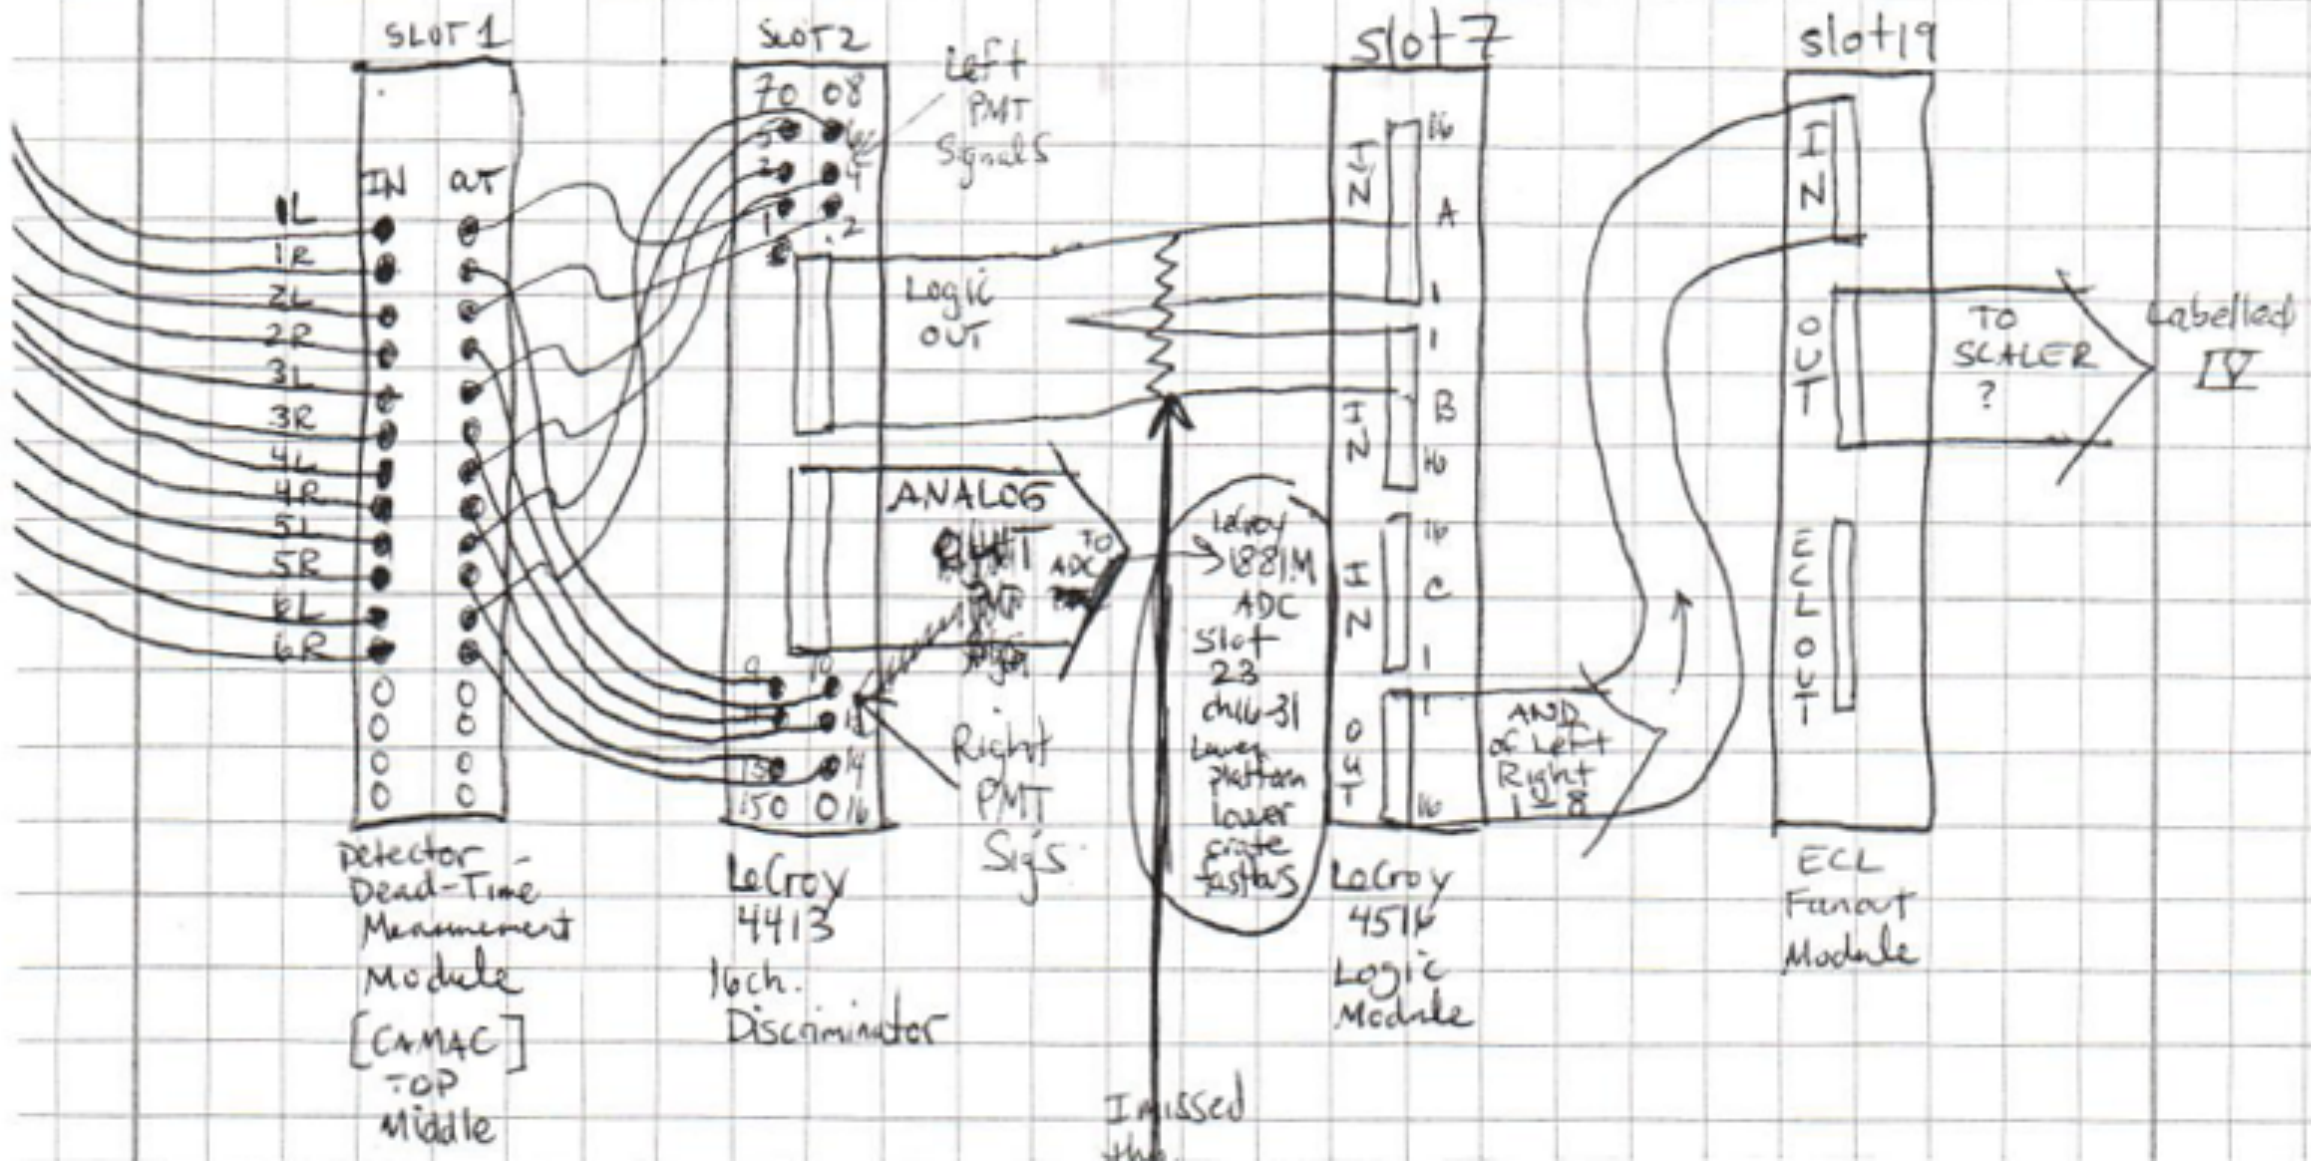 SLOT 1
IN OUT
1L
1R
2L
2R
3L
3R
4L
4R
5L
5R
6L
6R
Detector
Dead-Time
Measurement
Module
[CAMAC]
TOP
Middle
SLOT 2
7 8
5 6
3 4
1 2
Left
PMT
Signals
Logic
OUT
ANALOG
TO
ADC
9 10
11 12
13 14
15 16
Right
PMT
Sigs
LeCroy
4413
16ch.
Discriminator
LeCroy
1881M
ADC
Slot
23
ch16-31
Lower
platform
lower
crate
fastbus
I missed
the
Slot 7
IN
16
A
1
IN
1
B
16
IN
16
C
1
OUT
1
16
AND
of Left
Right
1-8
LeCroy
4516
Logic
Module
slot 19
IN
OUT
ECL OUT
TO
SCALER
?
Labelled
IV
ECL
Fanout
Module